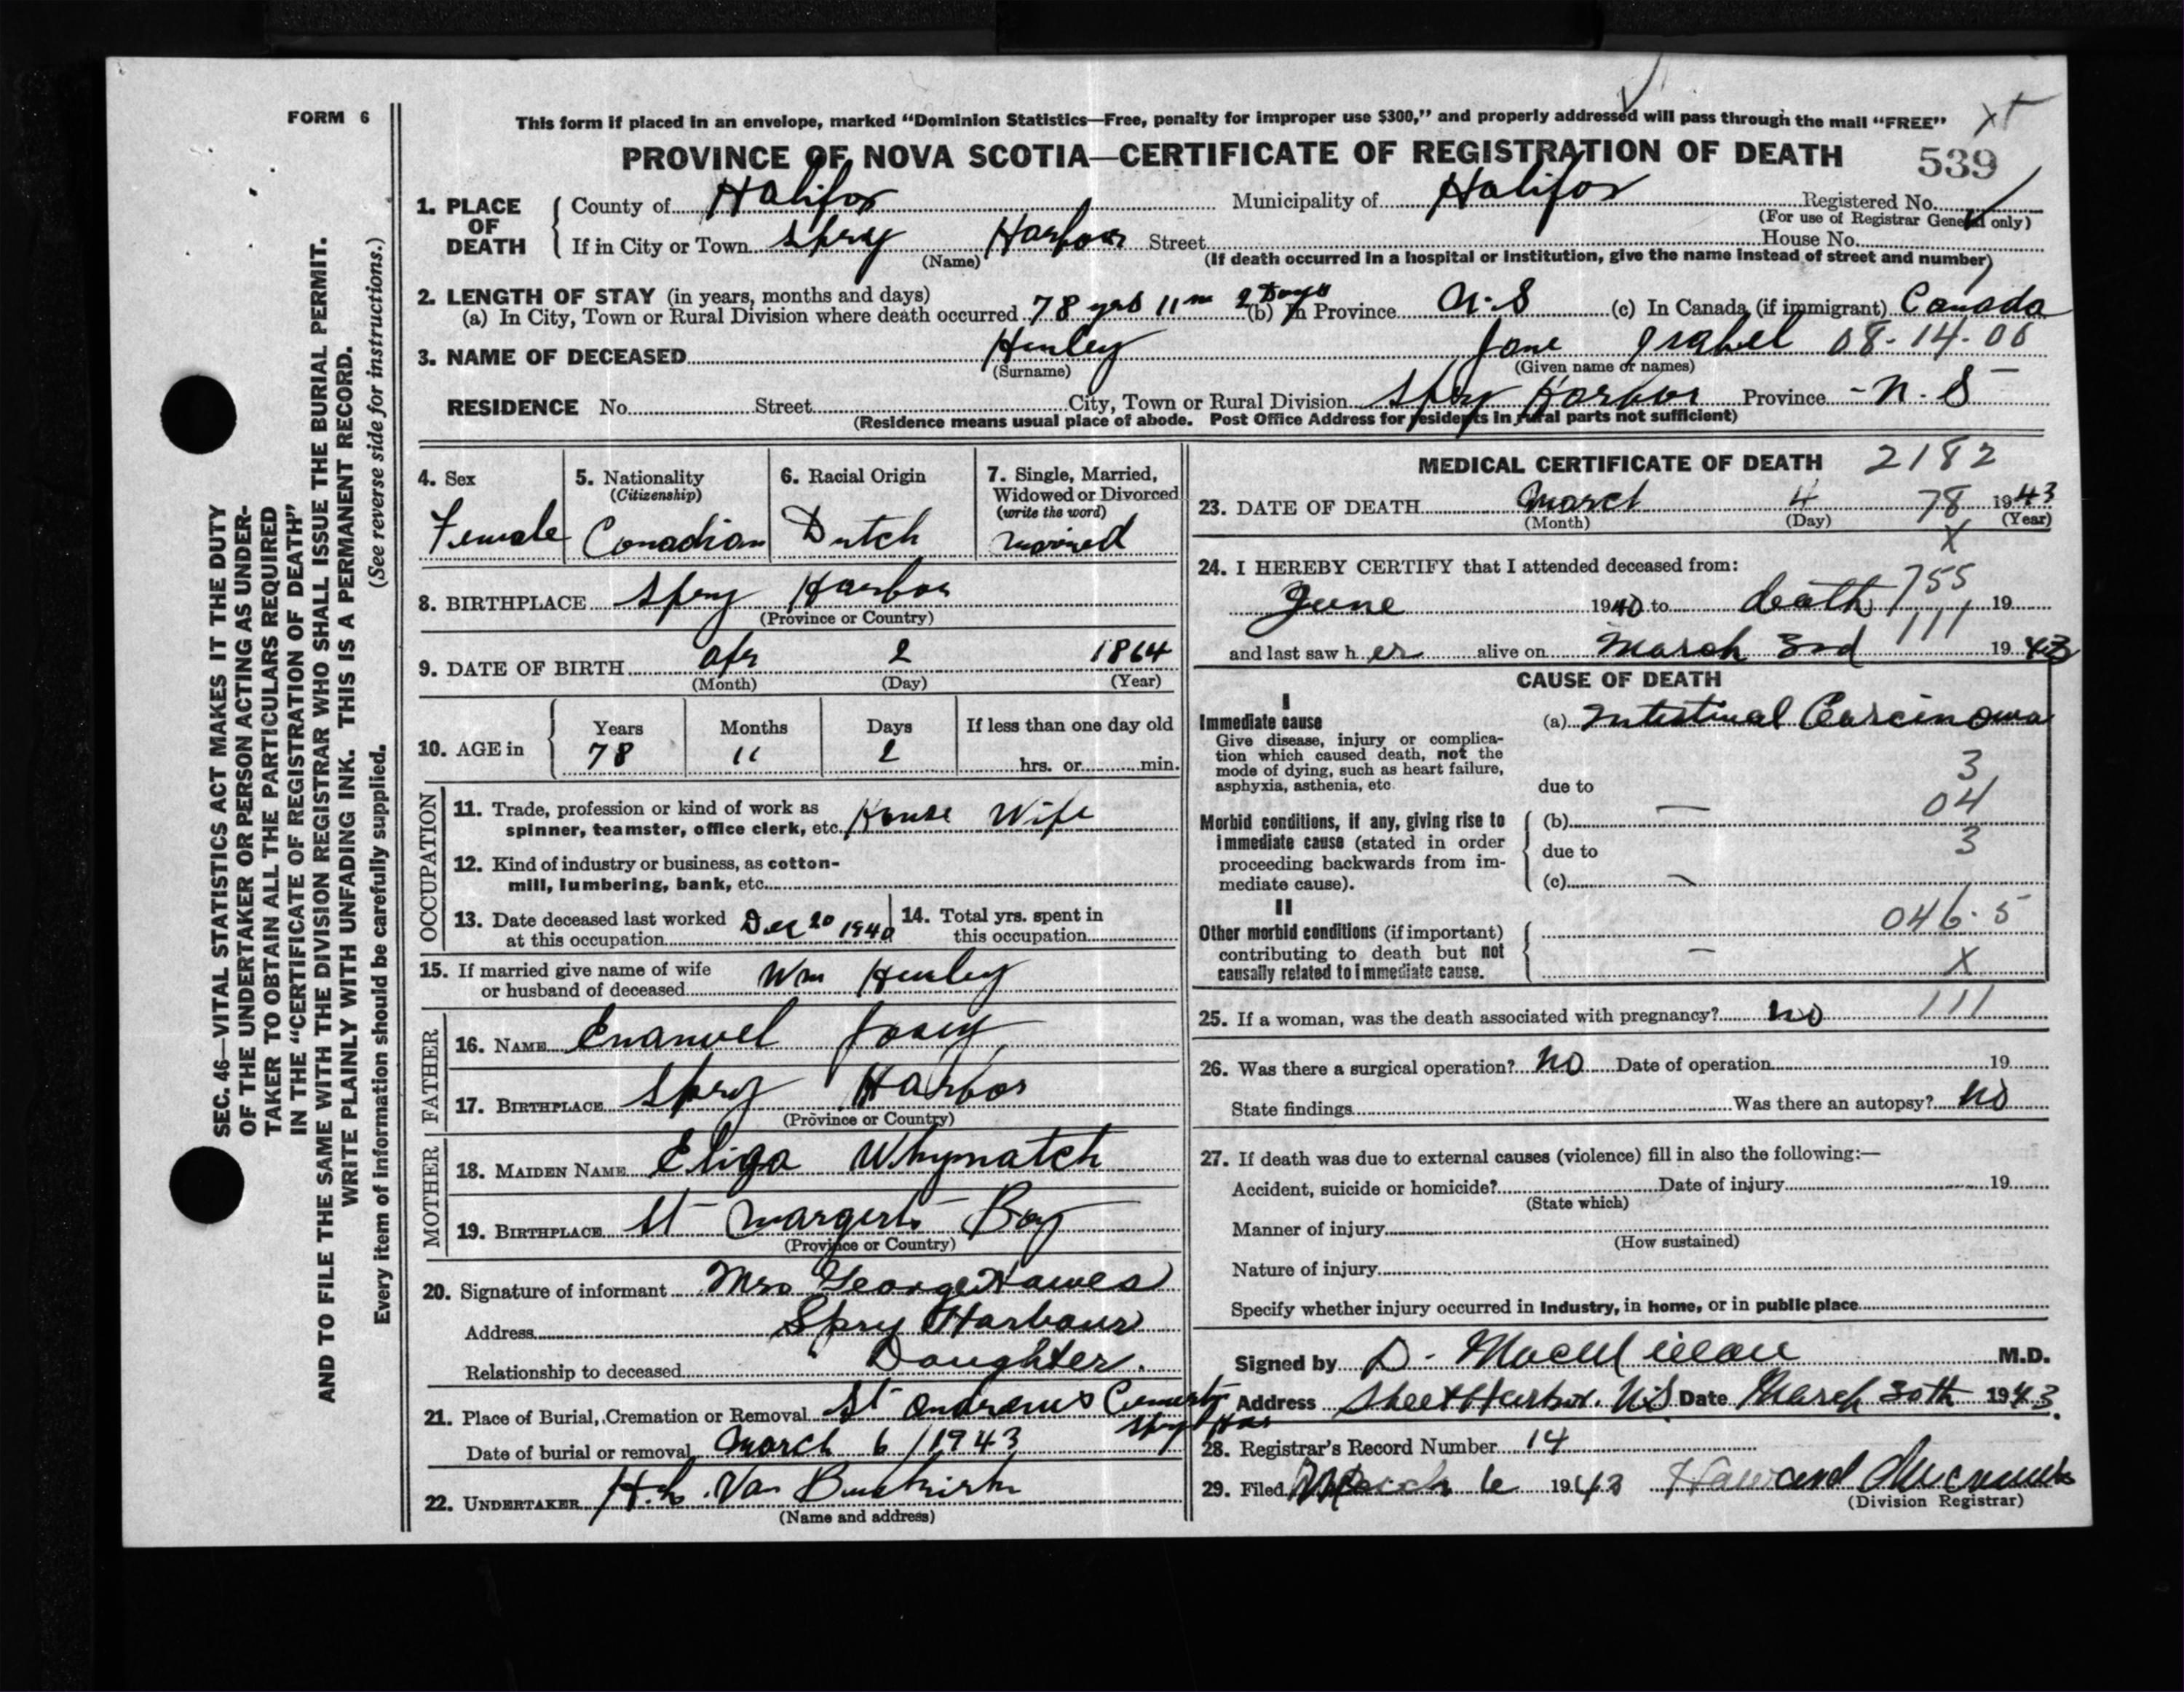 FORM 6
This form if placed in an envelope, marked “Dominion Statistics—Free, penalty for improper use $300,” and properly addressed will pass through the mail “FREE”
PROVINCE OF NOVA SCOTIA—CERTIFICATE OF REGISTRATION OF DEATH 539
1. PLACE OF DEATH
County of Halifax Municipality of Halifax Registered No.
(For use of Registrar General only)
If in City or Town Spry Harbor Street House No.
(Name) (If death occurred in a hospital or institution, give the name instead of street and number)
2. LENGTH OF STAY (in years, months and days)
(a) In City, Town or Rural Division where death occurred 78 yrs 11 m 2 Days (b) In Province N.S (c) In Canada (if immigrant) Canada
3. NAME OF DECEASED Henley Jane Isabel 08-14-06
(Surname) (Given name or names)
RESIDENCE No. Street City, Town or Rural Division Spry Harbor Province N.S
(Residence means usual place of abode. Post Office Address for residents in rural parts not sufficient)
4. Sex
Female
5. Nationality
(Citizenship)
Canadian
6. Racial Origin
Dutch
7. Single, Married,
Widowed or Divorced
(write the word)
Married
8. BIRTHPLACE Spry Harbor
(Province or Country)
9. DATE OF BIRTH Apr 2 1864
(Month) (Day) (Year)
10. AGE in
Years Months Days If less than one day old
78 11 2 hrs. or min.
OCCUPATION
11. Trade, profession or kind of work as
spinner, teamster, office clerk, etc. House Wife
12. Kind of industry or business, as cotton-
mill, lumbering, bank, etc.
13. Date deceased last worked
at this occupation Dec 20 1940
14. Total yrs. spent in
this occupation
15. If married give name of wife
or husband of deceased Wm Henley
FATHER
16. NAME Emanuel Josey
17. BIRTHPLACE Spry Harbor
(Province or Country)
MOTHER
18. MAIDEN NAME Eliza Whynatch
19. BIRTHPLACE St Margerts Bay
(Province or Country)
20. Signature of informant Mrs George Hawes
Address Spry Harbour
Relationship to deceased Daughter.
21. Place of Burial, Cremation or Removal St Andrews Cemerty
Spry Har
Date of burial or removal March 6/1943
22. UNDERTAKER H.L. Van Buskirk
(Name and address)
MEDICAL CERTIFICATE OF DEATH 2182
23. DATE OF DEATH March 4 78 1943
(Month) (Day) (Year)
X
24. I HEREBY CERTIFY that I attended deceased from:
June 1940 to death 755 19
111
and last saw her alive on March 3rd 1943
CAUSE OF DEATH
I
Immediate cause (a) Intestinal Carcinoma
Give disease, injury or complica-
tion which caused death, not the
mode of dying, such as heart failure,
asphyxia, asthenia, etc.
3
due to
04
Morbid conditions, if any, giving rise to
immediate cause (stated in order
proceeding backwards from im-
mediate cause).
(b) —
3
due to
(c) —
II
046.5
Other morbid conditions (if important)
contributing to death but not
causally related to immediate cause.
—
X
25. If a woman, was the death associated with pregnancy? no 111
26. Was there a surgical operation? No Date of operation 19
State findings Was there an autopsy? No
27. If death was due to external causes (violence) fill in also the following:—
Accident, suicide or homicide? Date of injury 19
(State which)
Manner of injury
(How sustained)
Nature of injury
Specify whether injury occurred in Industry, in home, or in public place
Signed by D. MacMillan M.D.
Address Sheet Harbor. N.S Date March 30th 1943.
28. Registrar's Record Number 14
29. Filed March 6 1943
(Division Registrar)
SEC. 46—VITAL STATISTICS ACT MAKES IT THE DUTY
OF THE UNDERTAKER OR PERSON ACTING AS UNDER-
TAKER TO OBTAIN ALL THE PARTICULARS REQUIRED
IN THE “CERTIFICATE OF REGISTRATION OF DEATH”
AND TO FILE THE SAME WITH THE DIVISION REGISTRAR WHO SHALL ISSUE THE BURIAL PERMIT.
WRITE PLAINLY WITH UNFADING INK. THIS IS A PERMANENT RECORD.
Every item of information should be carefully supplied. (See reverse side for instructions.)